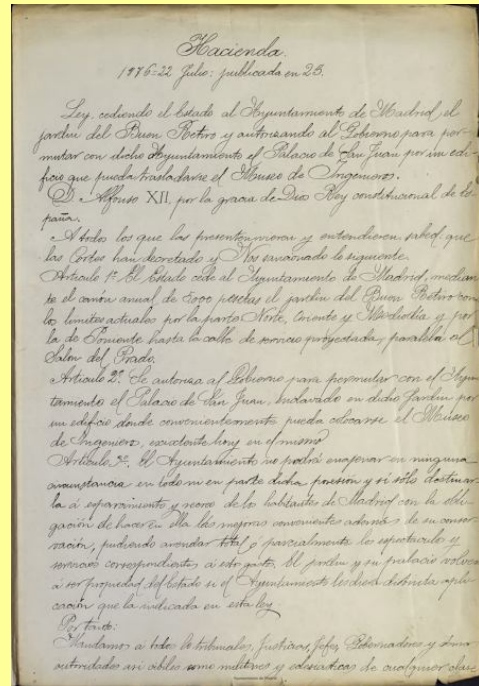 Hacienda.
1876=22 Julio: publicada en 25.
Ley, cediendo el Estado al Ayuntamiento de Madrid, el
jardin del Buen Retiro y autorizando al Gobierno para per-
mutar con dicho Ayuntamiento el Palacio de San Juan por un edi-
ficio que pueda trasladarse el Museo de Ingenieros.
D. Alfonso XII, por la gracia de Dios Rey constitucional de Es-
paña.
A todos los que las presentes vieren y entendieren, sabed que
las Cortes han decretado y Nos sancionado lo siguiente.
Articulo 1º. El Estado cede al Ayuntamiento de Madrid, median-
te el canón anual de pesetas el jardin del Buen Retiro con
los limites actuales por la parte Norte, Oriente y Mediodia y por
la de Poniente hasta la calle de servicio proyectada, paralela al
Salon del Prado.
Articulo 2º. Se autoriza al Gobierno para permutar con el Ayun-
tamiento el Palacio de San Juan, enclavado en dicho Jardin por
un edificio donde convenientemente pueda colocarse el Museo
de Ingenieros, hoy en el mismo
Articulo 3º. El Ayuntamiento no podrá enagenar en ninguna
circunstancia en todo ni en parte dicha posesión y si sólo destinar-
la á esparcimiento y recreo de los habitantes de Madrid con la obli-
gación de hacer en ella las mejoras convenientes además de su conser-
vación, pudiendo arrendar total ó parcialmente los espectaculos y
servicios correspondientes á este gasto. El jardin y su palacio volverán
á ser propiedad del Estado si el Ayuntamiento les diese distinta apli-
cación que la indicada en esta ley
Por tanto:
Mandamos á todos los tribunales, Justicias, Jefes, Gobernadores y demas
autoridades asi civiles como militares y eclesiasticas de cualquier clase
Ayuntamiento de Madrid